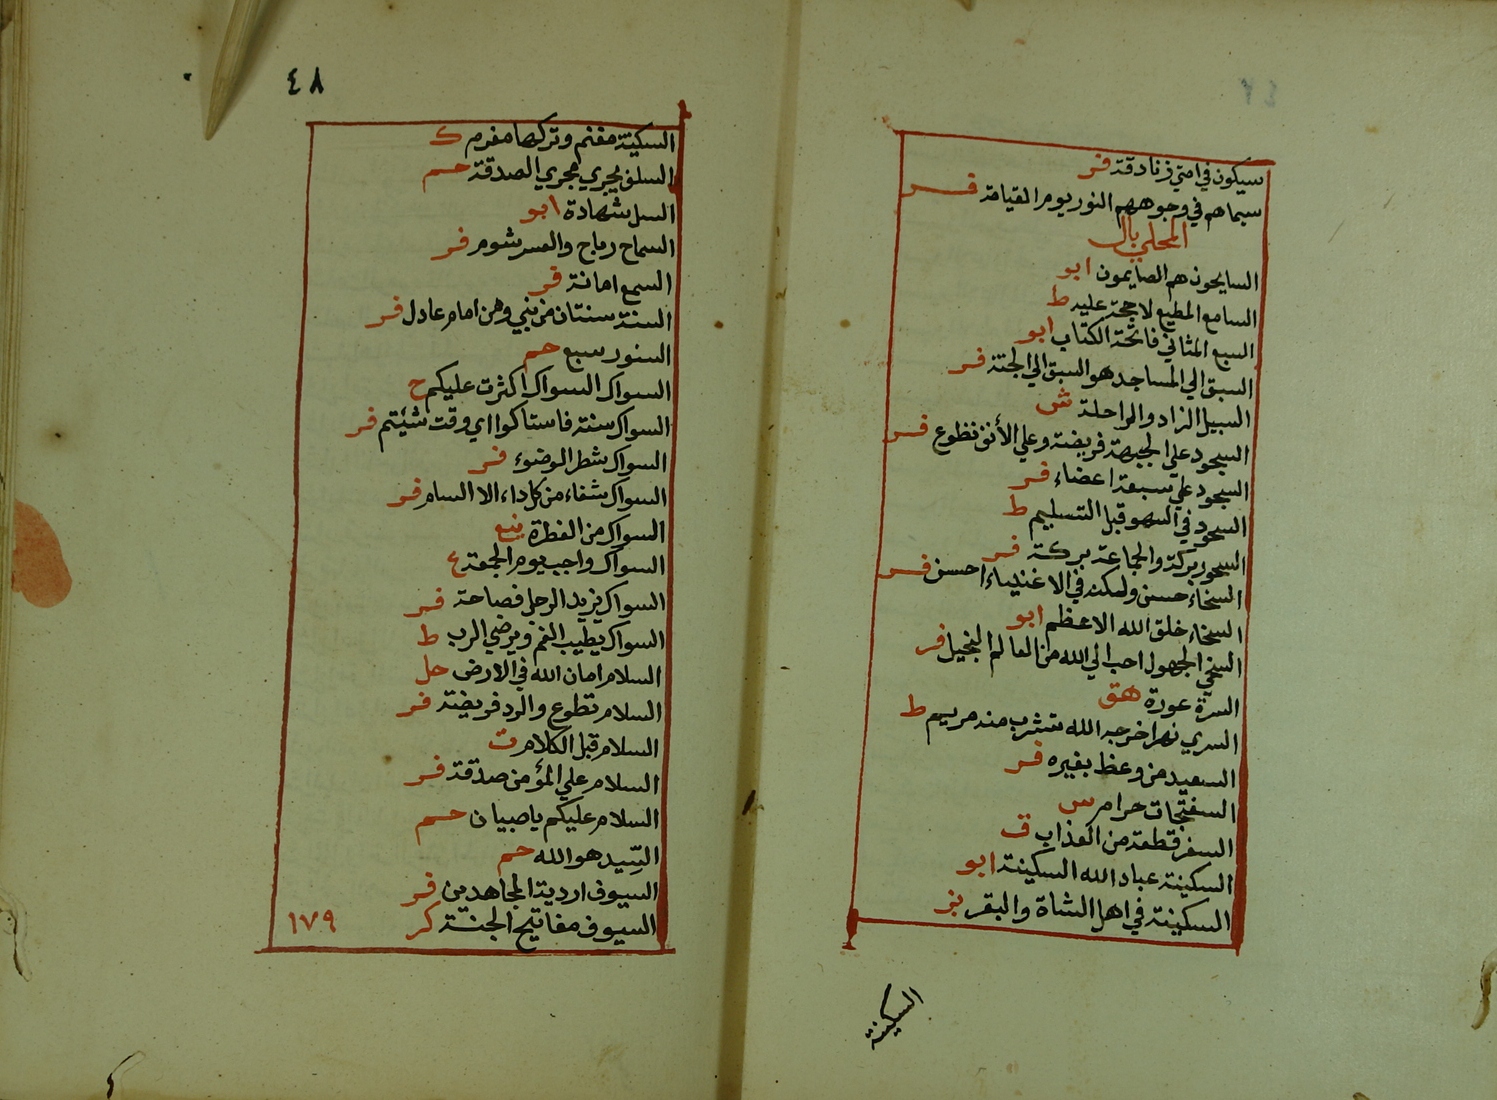 سيكون في امتي زنادقة فر
سيماهم في وجوههم النور يوم القيامة فر
المحلي بال
السايحون هم الصايمون ابو
السامع المطيع لا حجة عليه ط
السبع المثاني فاتحة الكتاب ابو
السبق الي المساجد هو السبق الي الجنة فر
السبيل الزاد والراحلة ش
السجود علي الجبهة فريضة وعلي الأنف تطوع فر
السجود علي سبعة اعضاء فر
السجود في السهو قبل التسليم ط
السحور بركة والجماعة بركة فر
السخاء حسن ولكنه في الاغنياء احسن فر
السخاء خلق الله الاعظم ابو
السخي الجهول احب الي الله من العالم البخيل فر
السرة عورة هق
السري نهر اخرجه الله تشرب منه مريم ط
السعيد من وعظ بغيره فر
السفتجات حرام س
السفر قطعة من العذاب ق
السكينة عباد الله السكينة ابو
السكينة في اهل الشاة والبقر بز
السكينة
٤٨
السكينة مغنم وتركها مغرم ك
السلف يجري مجري الصدقة حم
السل شهادة ابو
السماح رباح والعسر شوم فر
السمع امانة فر
السنة سنتان من نبي ومن امام عادل فر
السنور سبع حم
السواك السواك اكثرت عليكم ح
السواك سنة فاستاكوا اي وقت شئيتم فر
السواك شطر الوضوء فر
السواك شفاء من كل داء الا السام فر
السواك من الفطرة نع
السواك واجب يوم الجمعة ع
السواك يزيد الرجل فصاحة فر
السواك يطيب الفم ويرضي الرب ط
السلام امان الله في الارض حل
السلام تطوع والرد فريضة فر
السلام قبل الكلام ت
السلام علي المؤمن صدقة فر
السلام عليكم يا صبيان حم
السّيد هو الله حم
السيوف اردية المجاهدين فر
السيوف مفاتيح الجنة كر ١٧٩